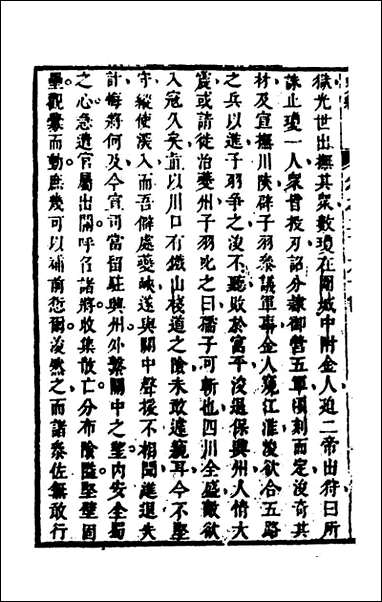 獄光世出撫其眾數瓊在圍城中附金人迫二帝出狩曰所
誅止瓊一人眾皆投刃詔分隸御營五軍頃刻而定浚奇其
材及宣撫川陜辟子羽叅議軍事金人窺江淮浚欲合五路
之兵以進子羽爭之浚不聽敗於富平浚退保興州人情大
震或請徙治夔州子羽叱之曰孺子可斬也四川全盛敵欲
入寇久矣直以川口有鐵山棧道之險未敢遽窺耳今不堅
守縱使深入而吾僻處夔峽遂與關中聲援不相聞進退失
計悔將何及今宣司當留駐興州外繫關中之望內安全蜀
之心急遣官屬出關呼召諸將收集散亡分布險隘堅壁固
壘觀釁而動庶幾可以補前愆爾浚然之而諸叅佐無敢行